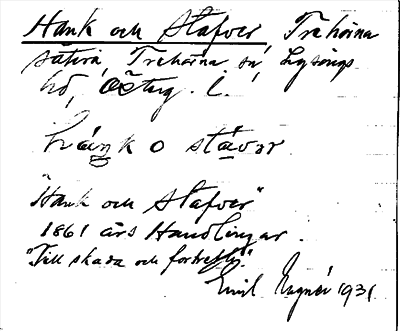 Hank och Stafver, Trehörna
säteri, Trehörna sn, Lysings
hd, Östug. l.
háŋk o stávər
"Hank och Stafver"
1861 års Handlingar.
"Till skada och förtret".
Emil 1931